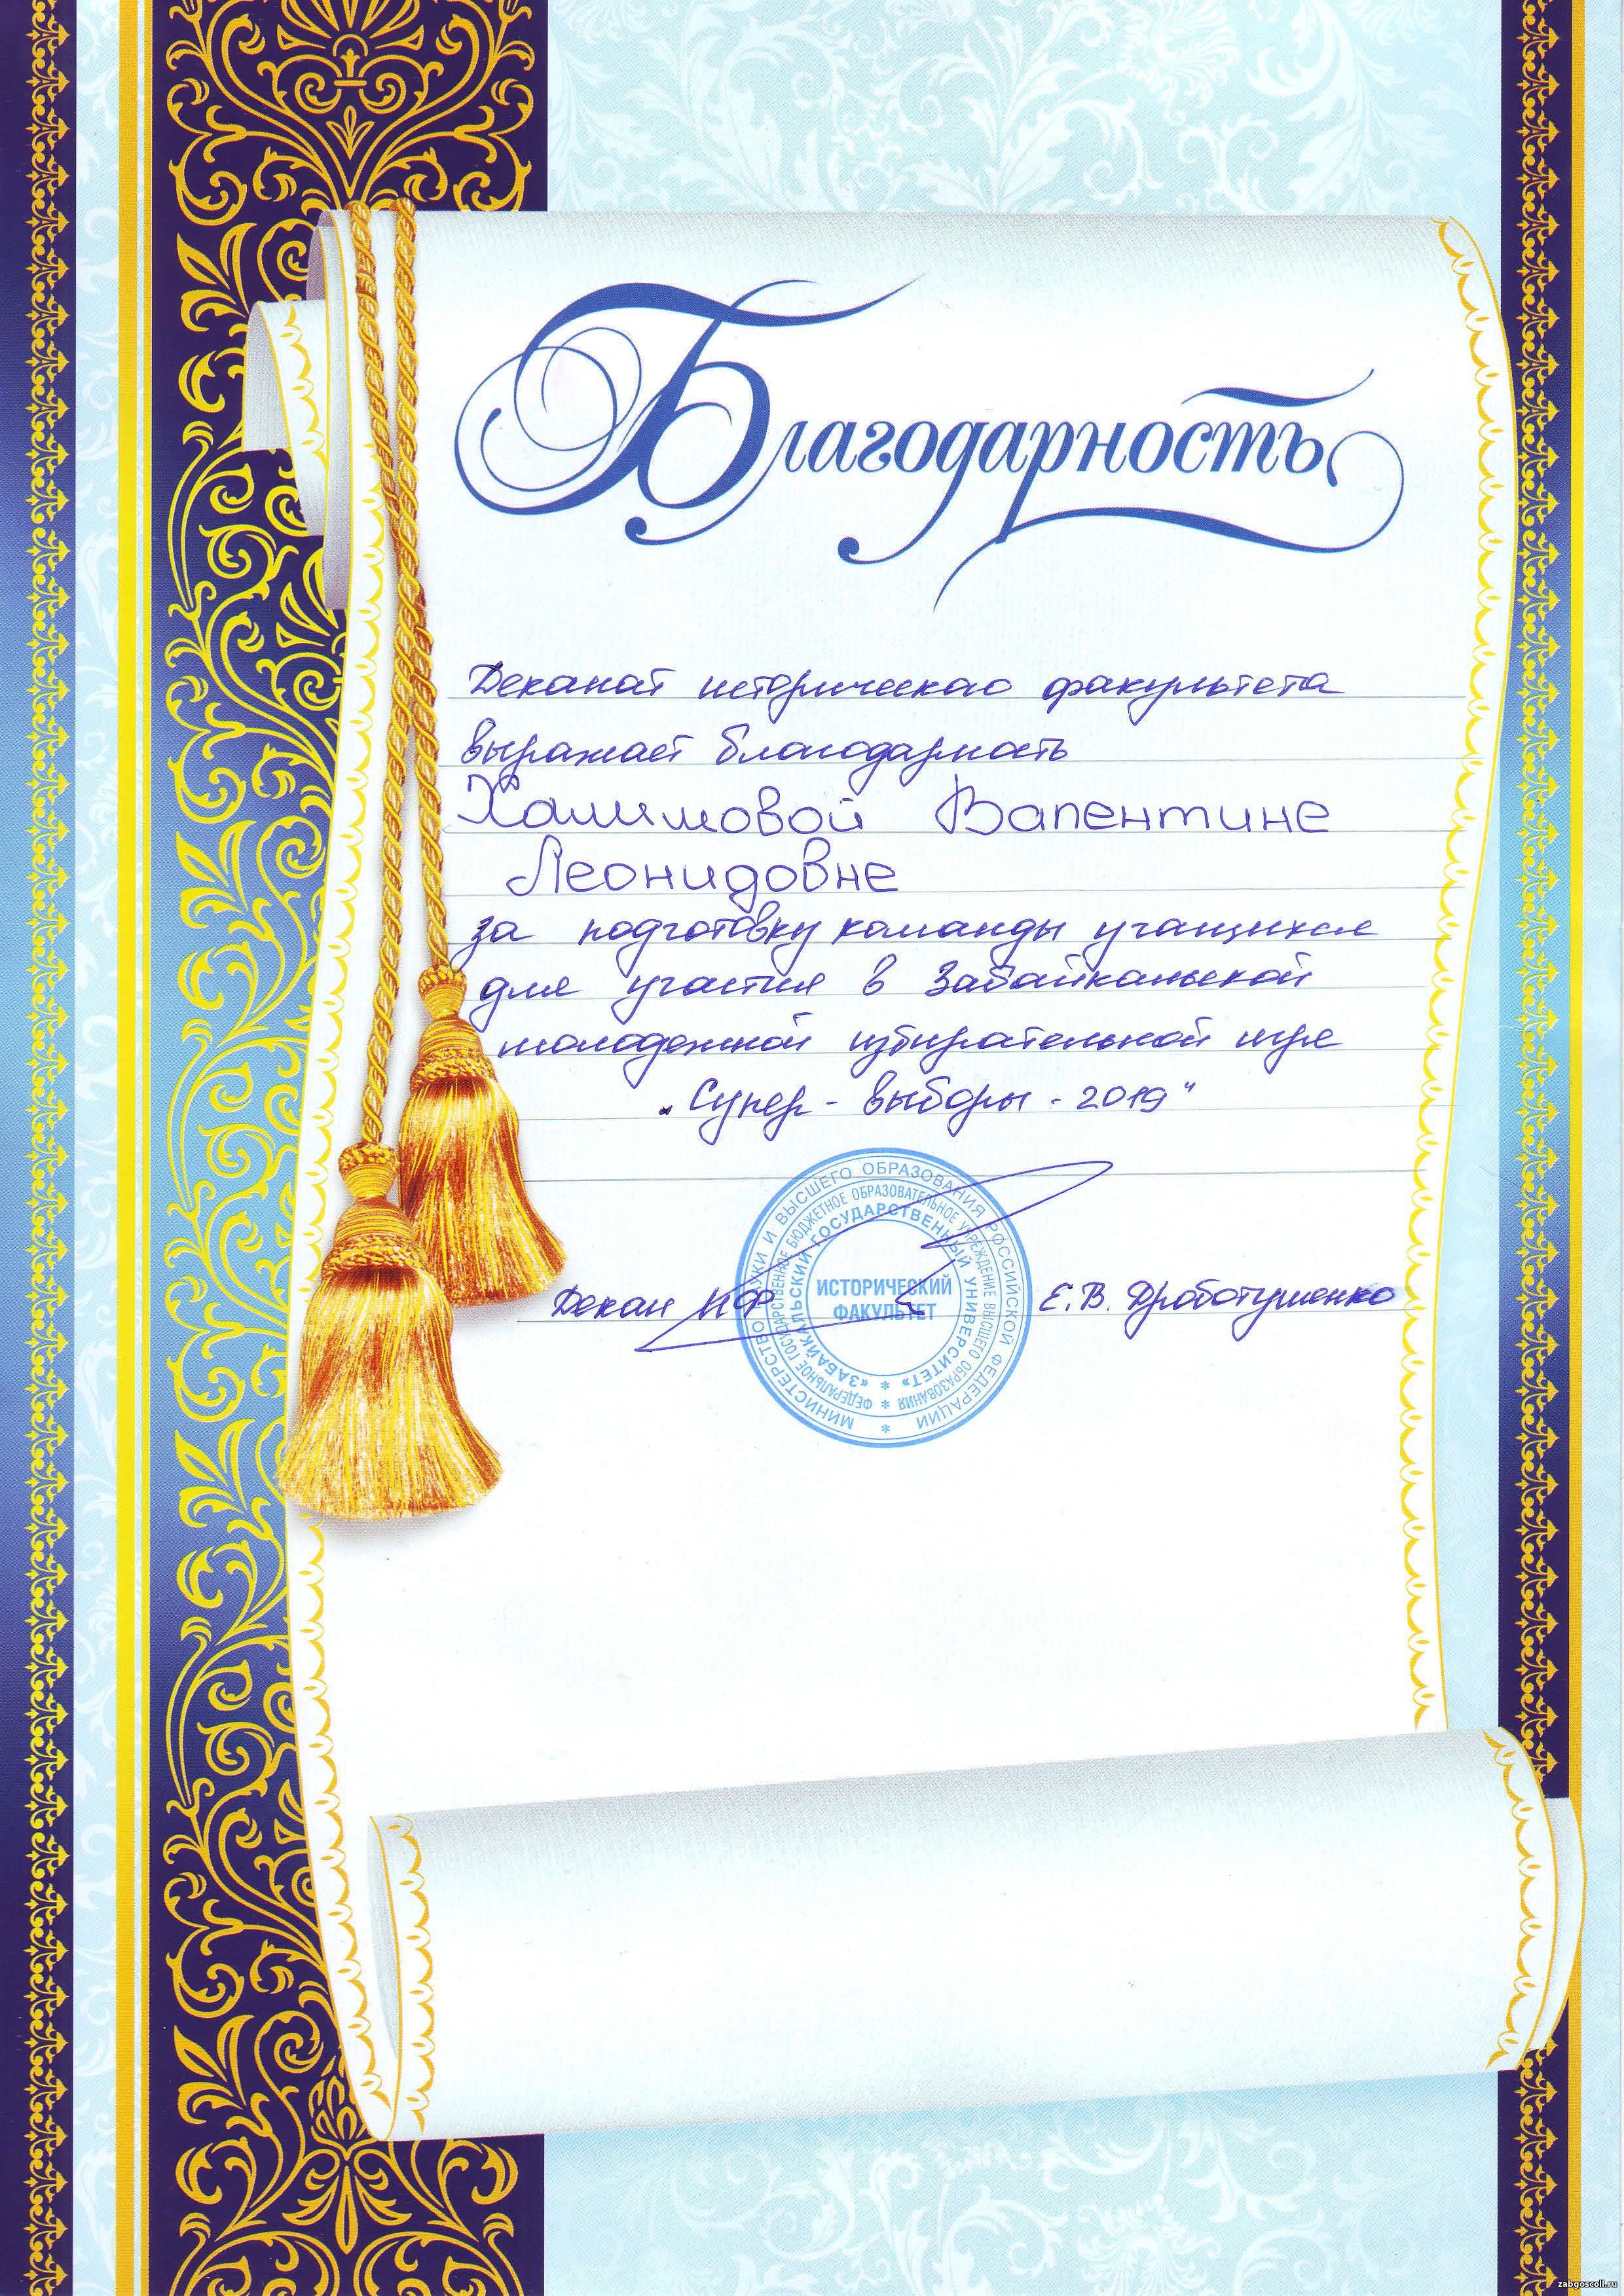 Благодарность
Деканат исторического факультета
выражает благодарность
Халимовой Валентине
Леонидовне
за подготовку команды учащихся
для участия в Забайкальской
молодежной избирательной игре
„Супер - выборы - 2019"
Декан ИФ Е.В. Дроботушенко
МИНИСТЕРСТВО НАУКИ И ВЫСШЕГО ОБРАЗОВАНИЯ РОССИЙСКОЙ ФЕДЕРАЦИИ *
ФЕДЕРАЛЬНОЕ ГОСУДАРСТВЕННОЕ БЮДЖЕТНОЕ ОБРАЗОВАТЕЛЬНОЕ УЧРЕЖДЕНИЕ ВЫСШЕГО ОБРАЗОВАНИЯ *
«ЗАБАЙКАЛЬСКИЙ ГОСУДАРСТВЕННЫЙ УНИВЕРСИТЕТ» *
ИСТОРИЧЕСКИЙ
ФАКУЛЬТЕТ
zabgoscoll.ru